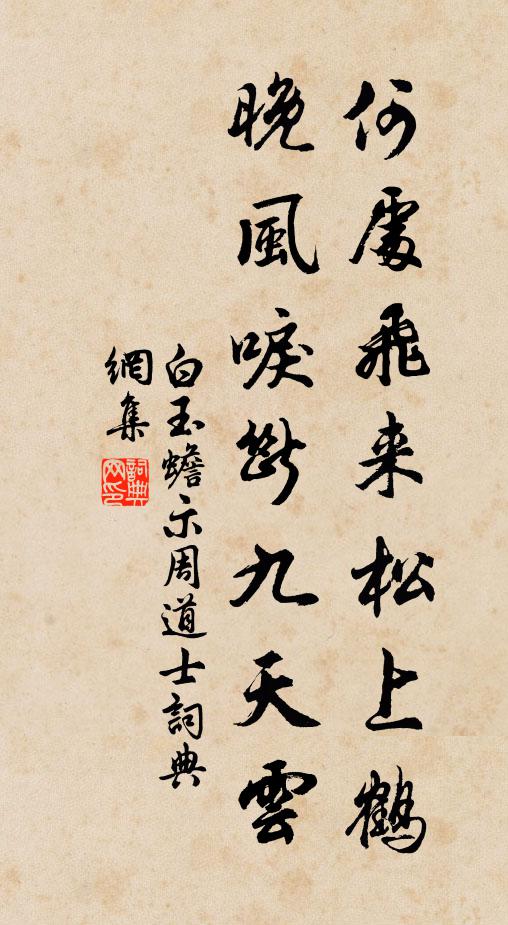 何處飛来松上鶴
晚風唳斷九天雲
白玉蟾示周道士詞典
網集
詞典
网印